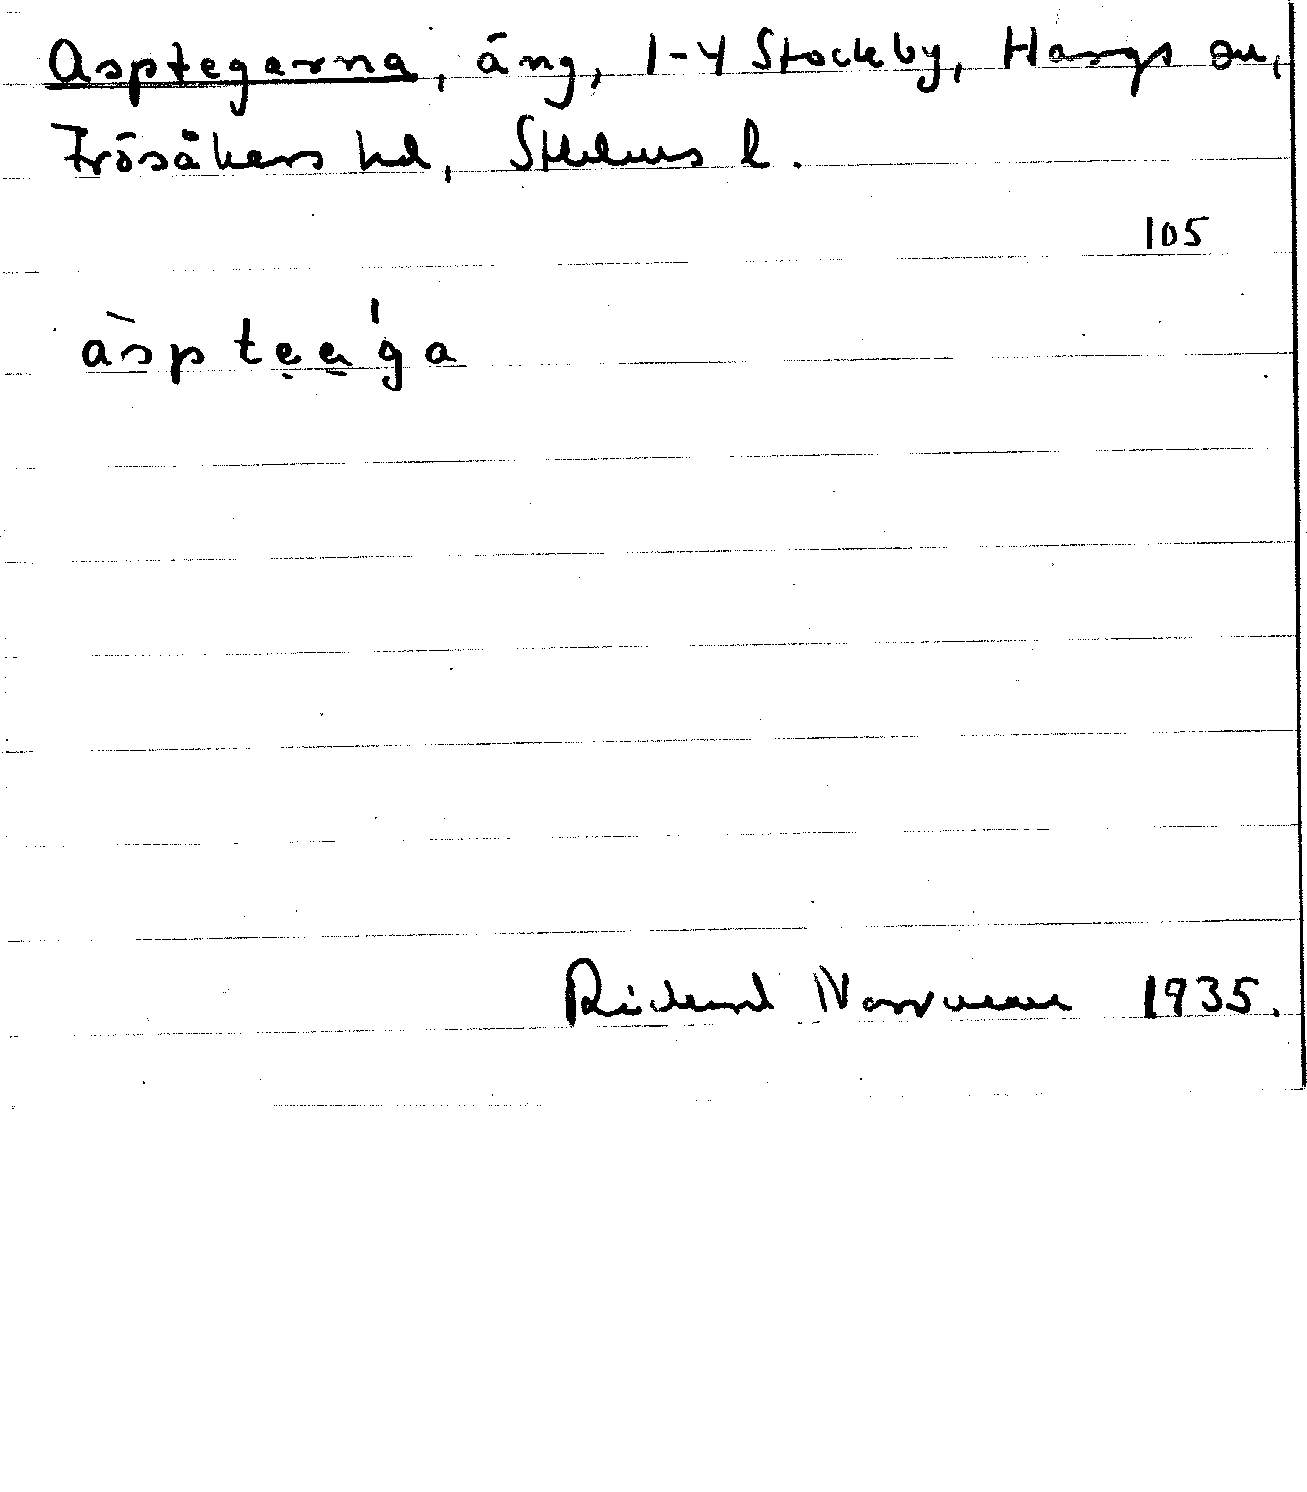 Asptegarna, äng, 1-4 Stockby, Hargs sn,
Frösåkers hd, Sthlms l.
105
àsptee̱'ga
Rickard Norrman 1935.